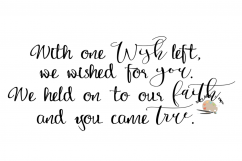 With one Wish left,
we wished for you.
We held on to our faith,
and you came true.